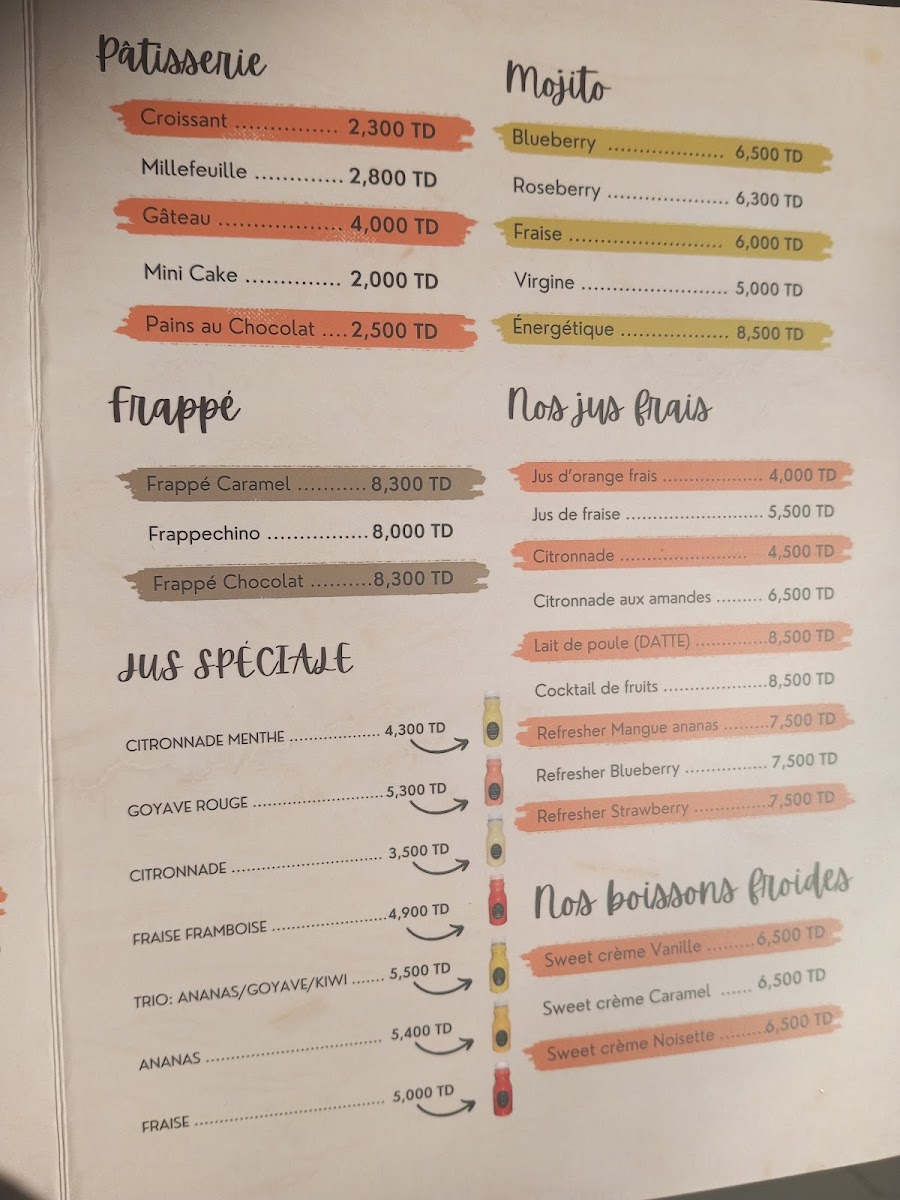 Pâtisserie
Croissant ................ 2,300 TD
Millefeuille ............. 2,800 TD
Gâteau ................... 4,000 TD
Mini Cake .............. 2,000 TD
Pains au Chocolat .... 2,500 TD
Frappé
Frappé Caramel .......... 8,300 TD
Frappechino ............... 8,000 TD
Frappé Chocolat .......... 8,300 TD
JUS SPÉCIALE
CITRONNADE MENTHE .................. 4,300 TD
GOYAVE ROUGE .......................... 5,300 TD
CITRONNADE .............................. 3,500 TD
FRAISE FRAMBOISE ....................... 4,900 TD
TRIO: ANANAS/GOYAVE/KIWI ....... 5,500 TD
ANANAS ................................... 5,400 TD
FRAISE ..................................... 5,000 TD
Mojito
Blueberry .................... 6,500 TD
Roseberry ..................... 6,300 TD
Fraise .......................... 6,000 TD
Virgine ......................... 5,000 TD
Énergétique ................... 8,500 TD
Nos jus frais
Jus d'orange frais .................... 4,000 TD
Jus de fraise ........................... 5,500 TD
Citronnade ......................... 4,500 TD
Citronnade aux amandes ......... 6,500 TD
Lait de poule (DATTE) .............. 8,500 TD
Cocktail de fruits .................... 8,500 TD
Refresher Mangue ananas ......... 7,500 TD
Refresher Blueberry ................ 7,500 TD
Refresher Strawberry .............. 7,500 TD
Nos boissons froides
Sweet crème Vanille ......... 6,500 TD
Sweet crème Caramel ...... 6,500 TD
Sweet crème Noisette ........ 6,500 TD